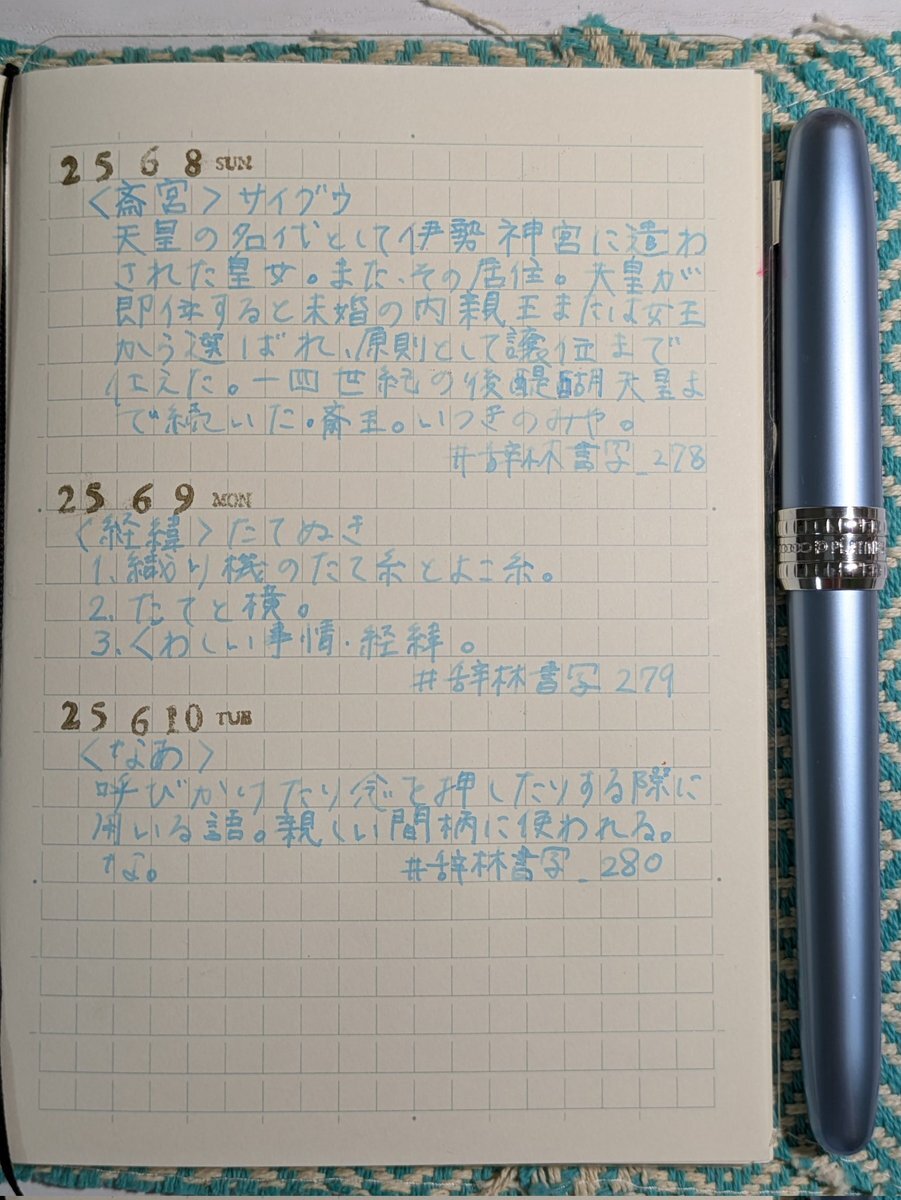 25 6 8 SUN
〈斎宮〉サイグウ
天皇の名代として伊勢神宮に遣わ
された皇女。また、その居住。天皇が
即位すると未婚の内親王または女王
から選ばれ、原則として譲位まで
仕えた。一四世紀の後醍醐天皇ま
で続いた。斎王。いつきのみや。
#辞林書写_278
25 6 9 MON
〈経緯〉たてぬき
1.織り機のたて糸とよこ糸。
2.たてと横。
3.くわしい事情・経緯。
#辞林書写 279
25 6 10 TUE
〈なあ〉
呼びかけたり念を押したりする際に
用いる語。親しい間柄に使われる。
な。 #辞林書写_280